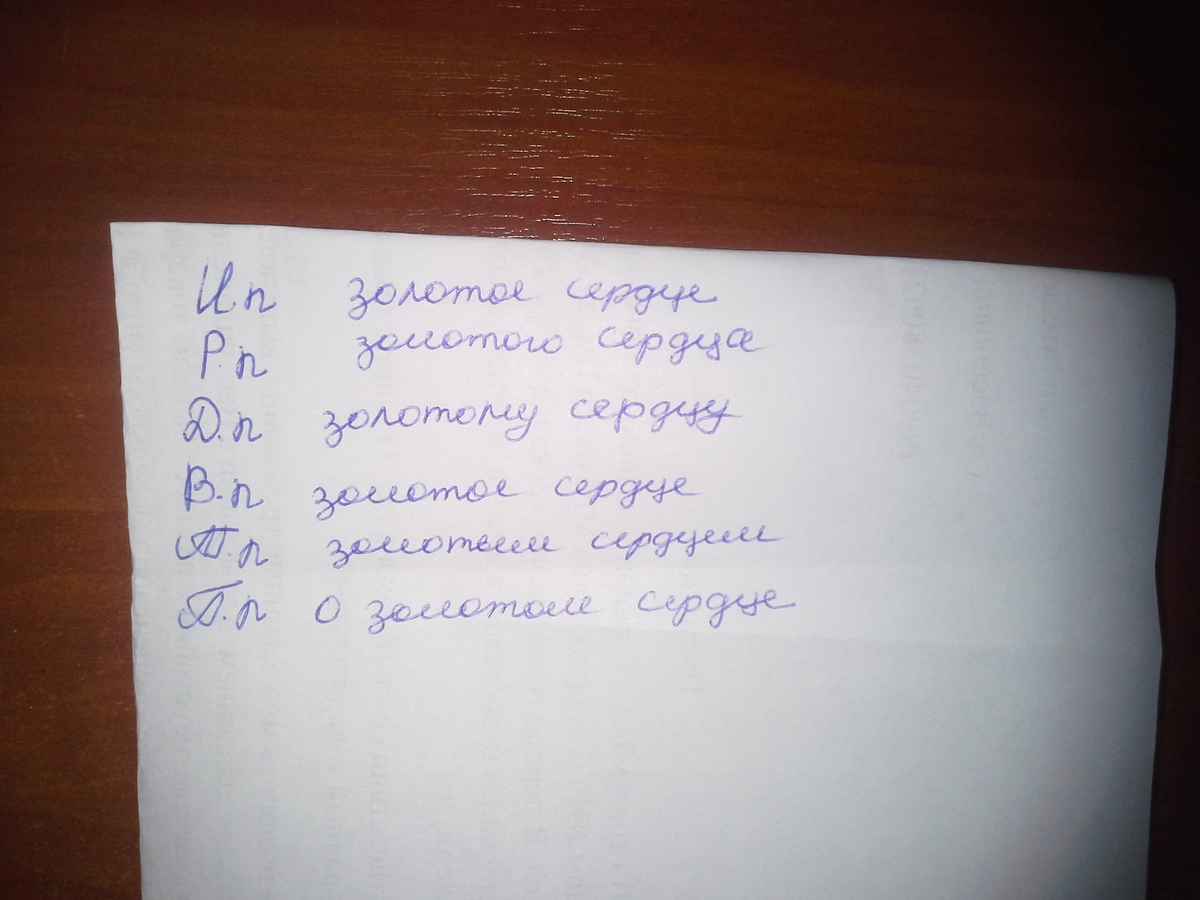 И.п золотое сердце
Р.п золотого сердца
Д.п золотому сердцу
В.п золотое сердце
Т.п золотым сердцем
П.п о золотом сердце